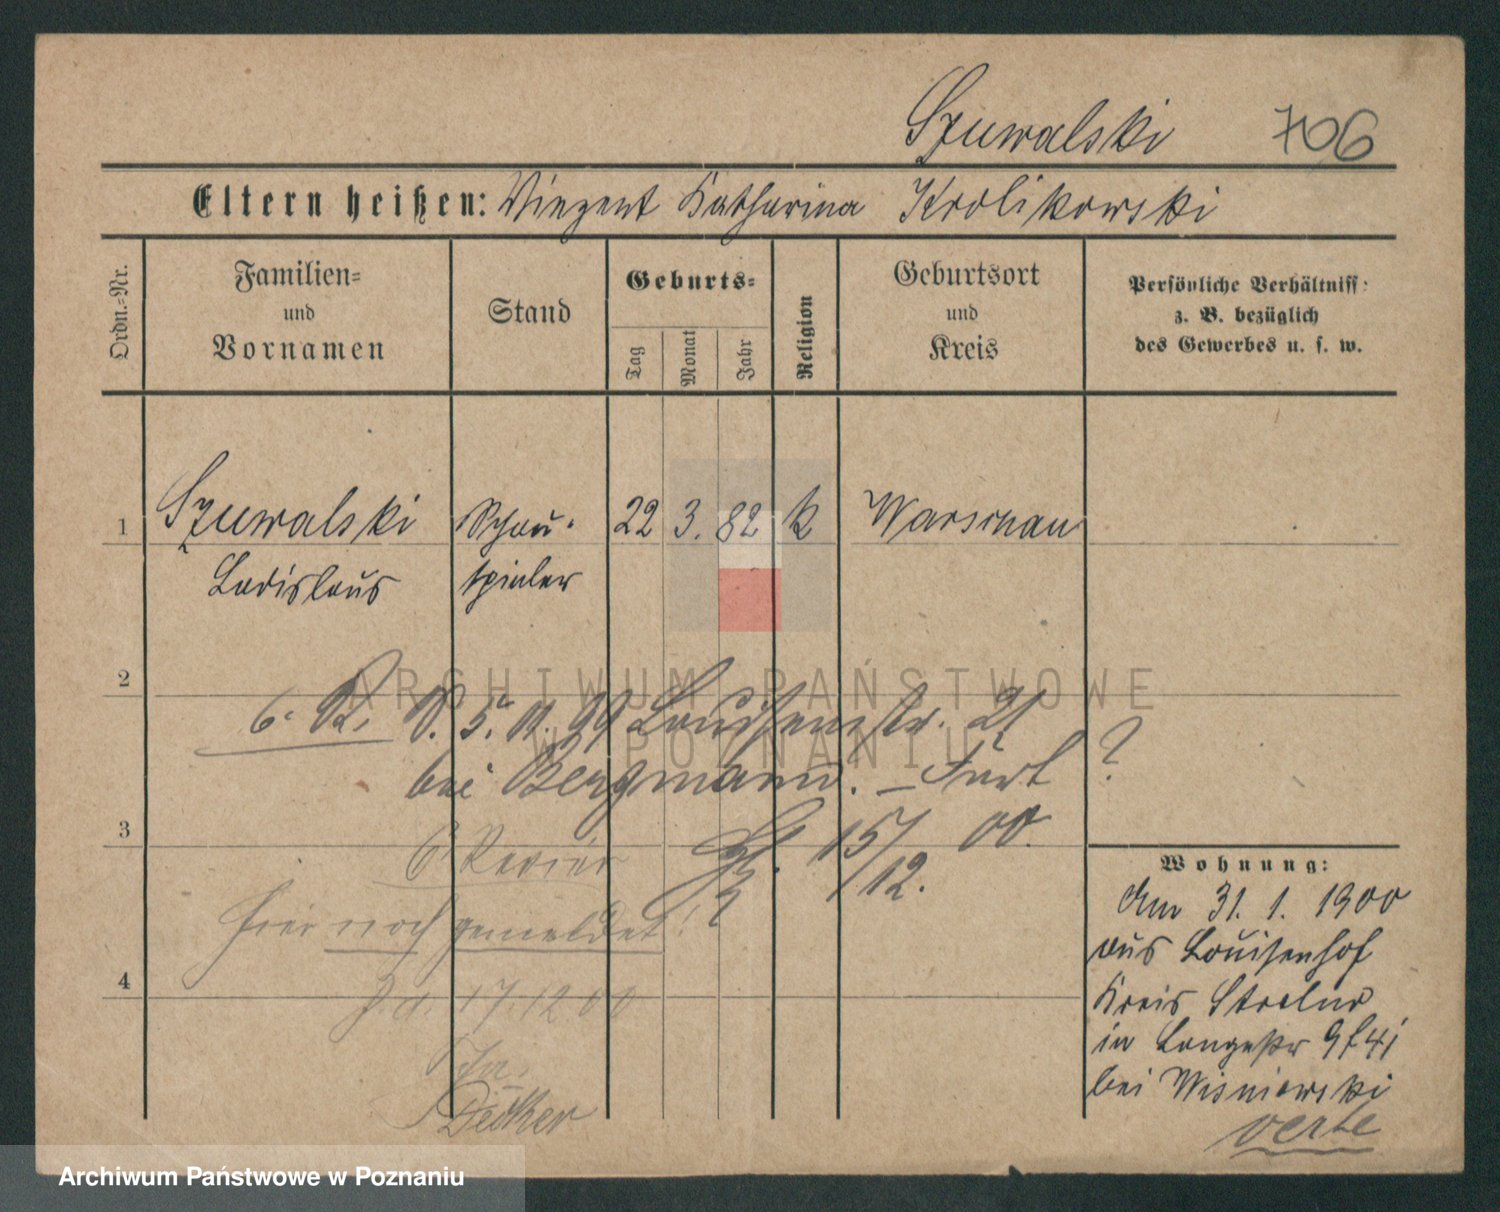 Szuwalski 706
Eltern heißen: Vinzent Katharina Krolikowski
Ordn.=Nr.
Familien=
und
Vornamen
Stand
Geburts=
Tag
Monat
Jahr
Religion
Geburtsort
und
Kreis
Persönliche Verhältniss:
z. B. bezüglich
des Gewerbes u. s. w.
1 Szuwalski Schau- 22 3. 82 k Warschau
Ladislaus spieler
2
6. R. V. 5. 11. 99 Louisenstr. 21
bei Bergmann. – Fürt ?
3
15/12. 00.
6 Revier
hier noch gemeldet!
4
17.12 00
Wohnung:
Am 31. 1. 1900
aus Louisenhof
Kreis Strelno
in Langestr
bei Wisniewski
verte
ARCHIWUM PAŃSTWOWE
W POZNANIU
Archiwum Państwowe w Poznaniu